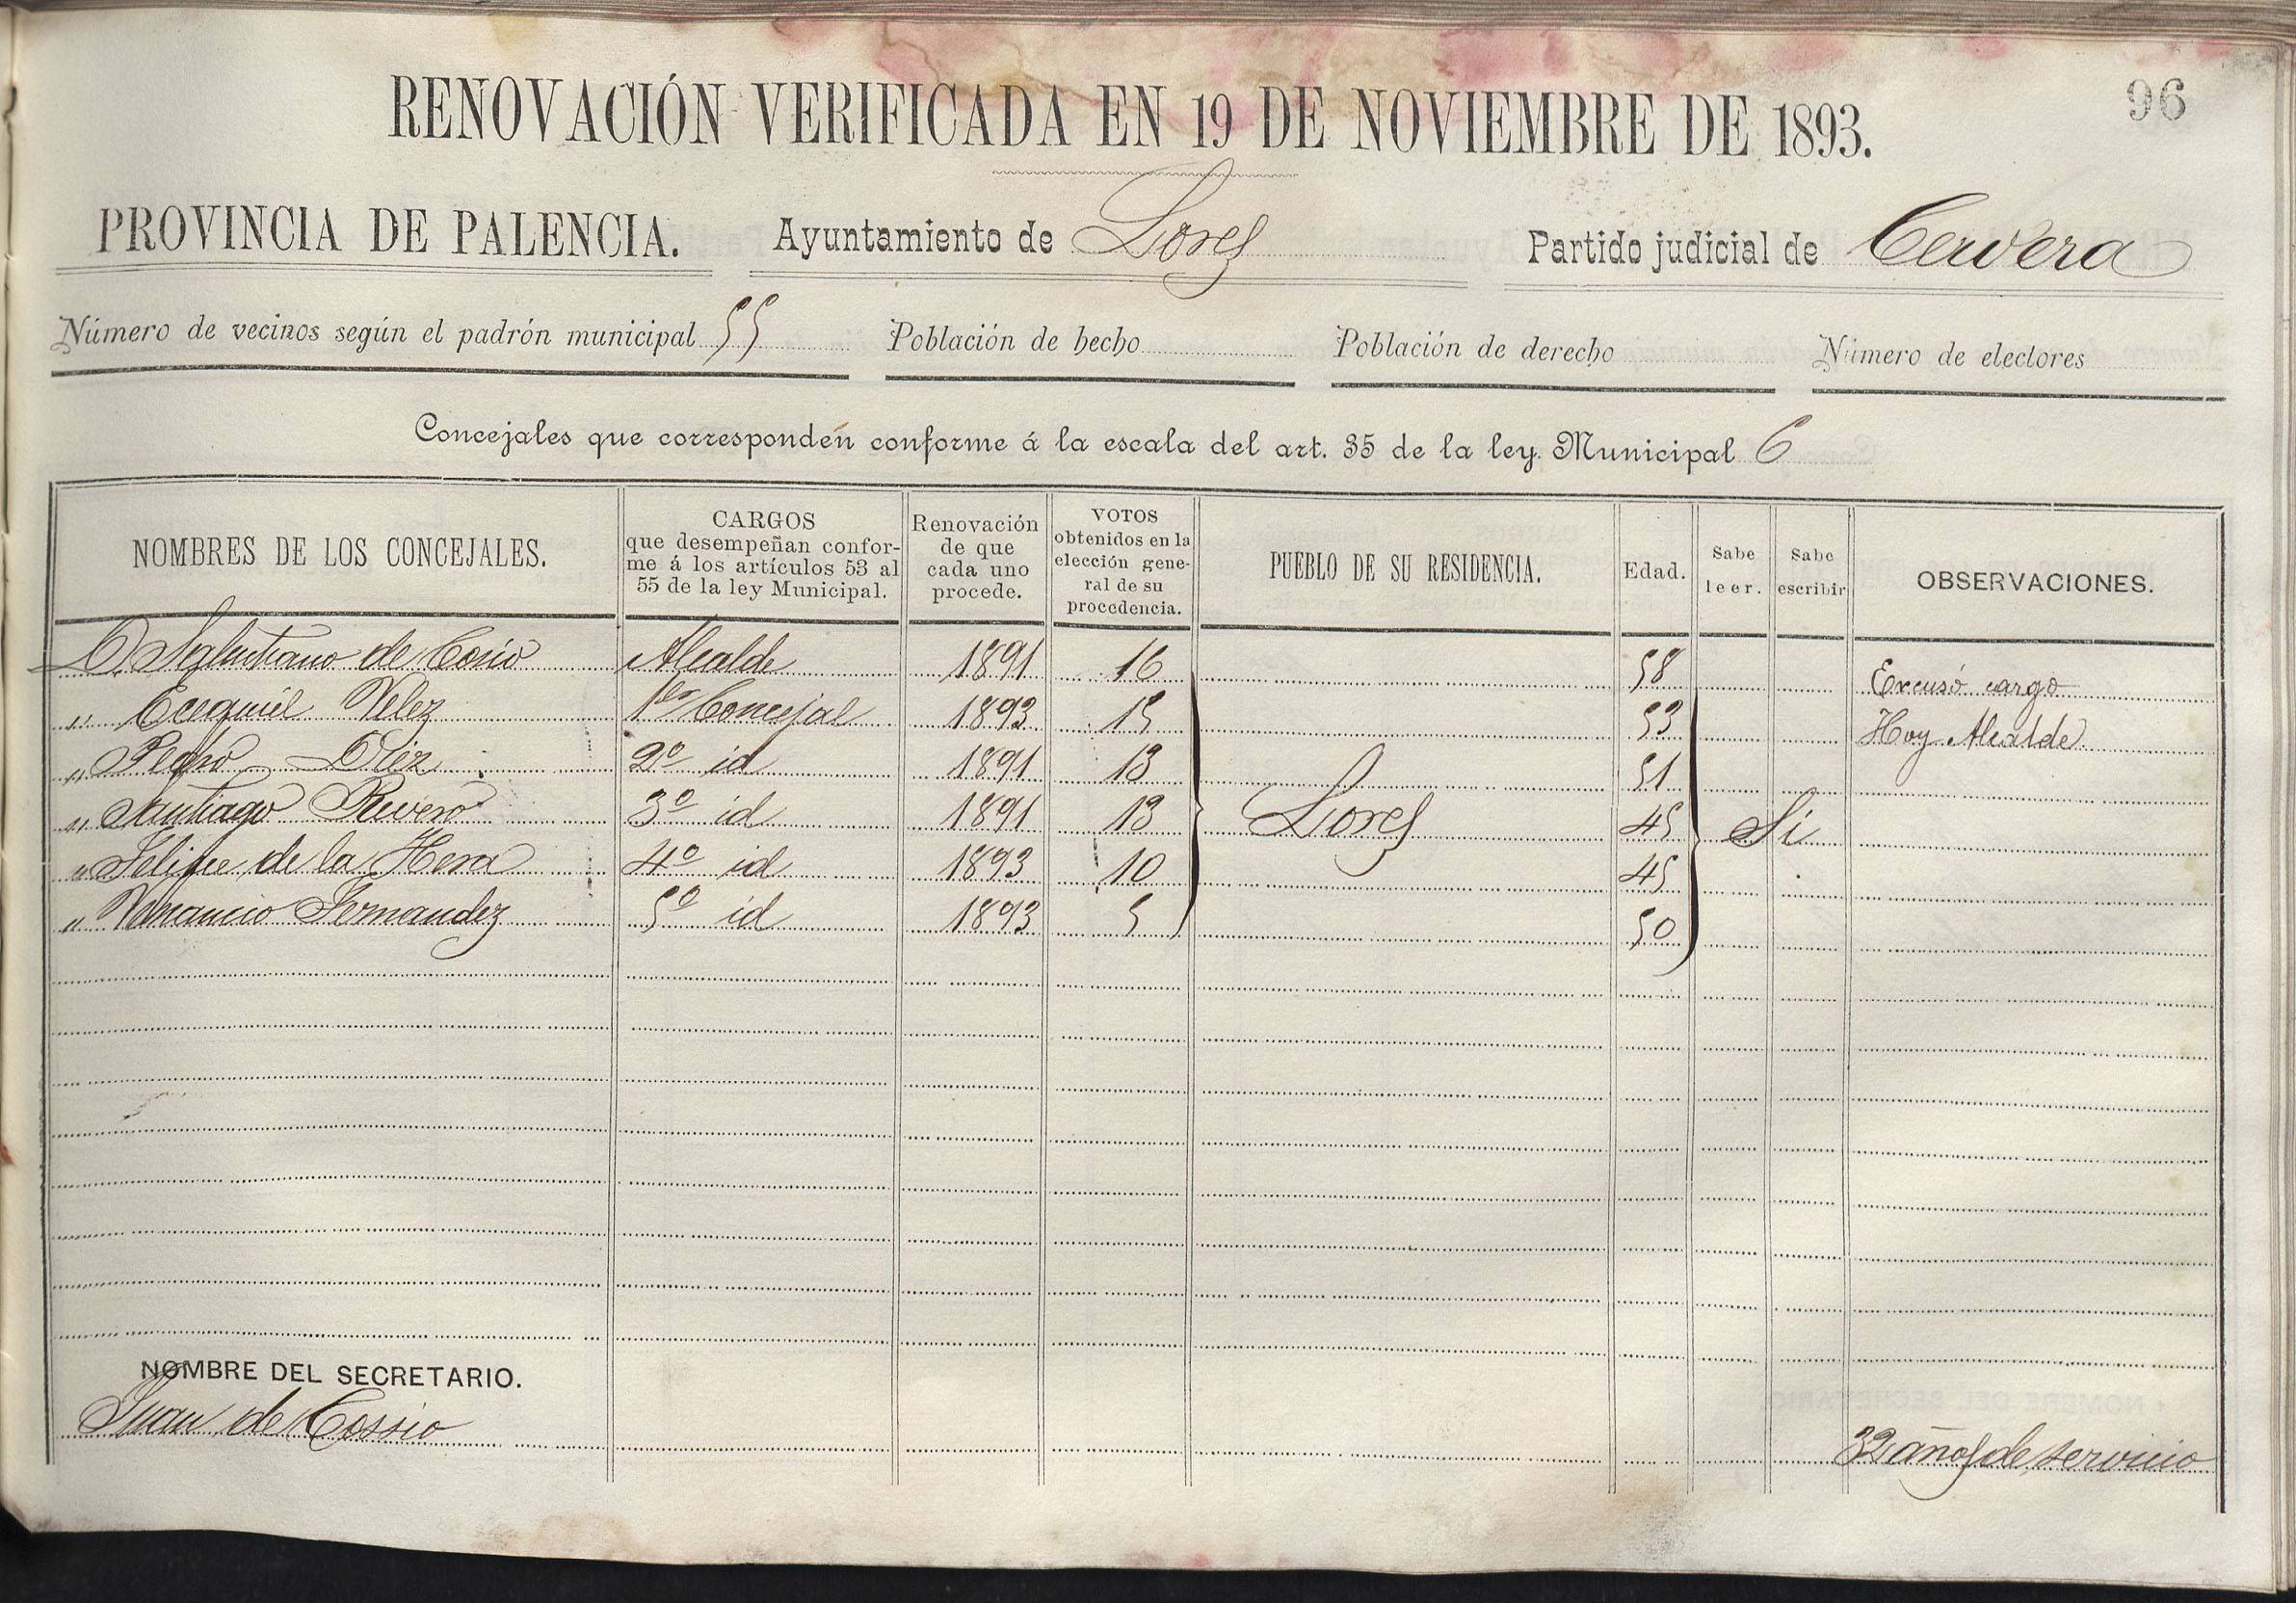 96
RENOVACIÓN VERIFICADA EN 19 DE NOVIEMBRE DE 1893.
PROVINCIA DE PALENCIA. Ayuntamiento de Lores Partido judicial de Cervera
Número de vecinos según el padrón municipal 55 Población de hecho Población de derecho Número de electores
Concejales que corresponden conforme á la escala del art. 35 de la ley Municipal 6
NOMBRES DE LOS CONCEJALES.
CARGOS
que desempeñan confor-
me á los artículos 53 al
55 de la ley Municipal.
Renovación
de que
cada uno
procede.
VOTOS
obtenidos en la
elección gene-
ral de su
procedencia.
PUEBLO DE SU RESIDENCIA.
Edad.
Sabe
leer.
Sabe
escribir
OBSERVACIONES.
D. Salustiano de Cosio Alcalde 1891 16 58 Excusó cargo
" Ecequiel Velez 1er Concejal 1893 15 53 Hoy Alcalde
" Pedro Diez 2º id 1891 13 51
" Santiago Rivero 3º id 1891 13 Lores 45 Si
" Felipe de la Hera 4º id 1893 10 45
" Venancio Fernandez 5º id 1893 5 50
NOMBRE DEL SECRETARIO.
Juan de Cossio 32 años de servicio